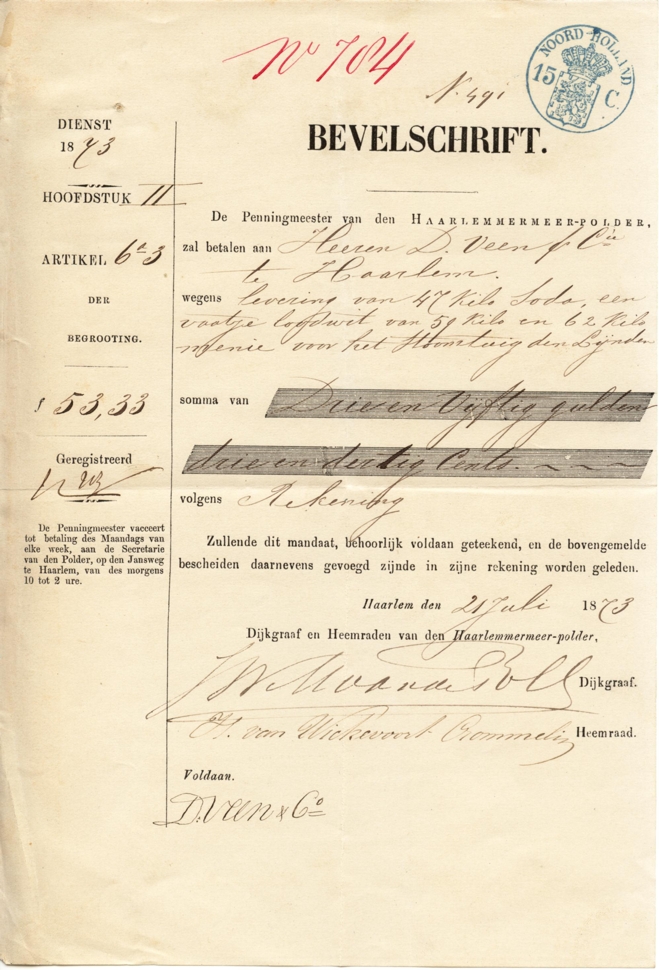 No 784
N. 491
NOORD-HOLLAND
15 C.
BEVELSCHRIFT.
DIENST
1873
HOOFDSTUK II
ARTIKEL 6a3
DER
BEGROOTING.
f 53,33
Geregistreerd
De Penningmeester vacceert
tot betaling des Maandags van
elke week, aan de Secretarie
van den Polder, op den Jansweg
te Haarlem, van des morgens
10 tot 2 ure.
De Penningmeester van den HAARLEMMERMEER-POLDER,
zal betalen aan Heeren D. Veen & Cie
te Haarlem.
wegens levering van 47 Kilo Soda, een
vaatje loodwit van 59 Kilo en 62 Kilo
menie voor het Stoomtuig den Lynden
somma van Drie en Vijftig gulden
drie en dertig Cents.
volgens Rekening
Zullende dit mandaat, behoorlijk voldaan geteekend, en de bovengemelde
bescheiden daarnevens gevoegd zijnde in zijne rekening worden geleden.
Haarlem den 21 Juli 1873
Dijkgraaf en Heemraden van den Haarlemmermeer-polder,
Dijkgraaf.
H. van Wickevoort Crommelin Heemraad.
Voldaan.
D. Veen & Co